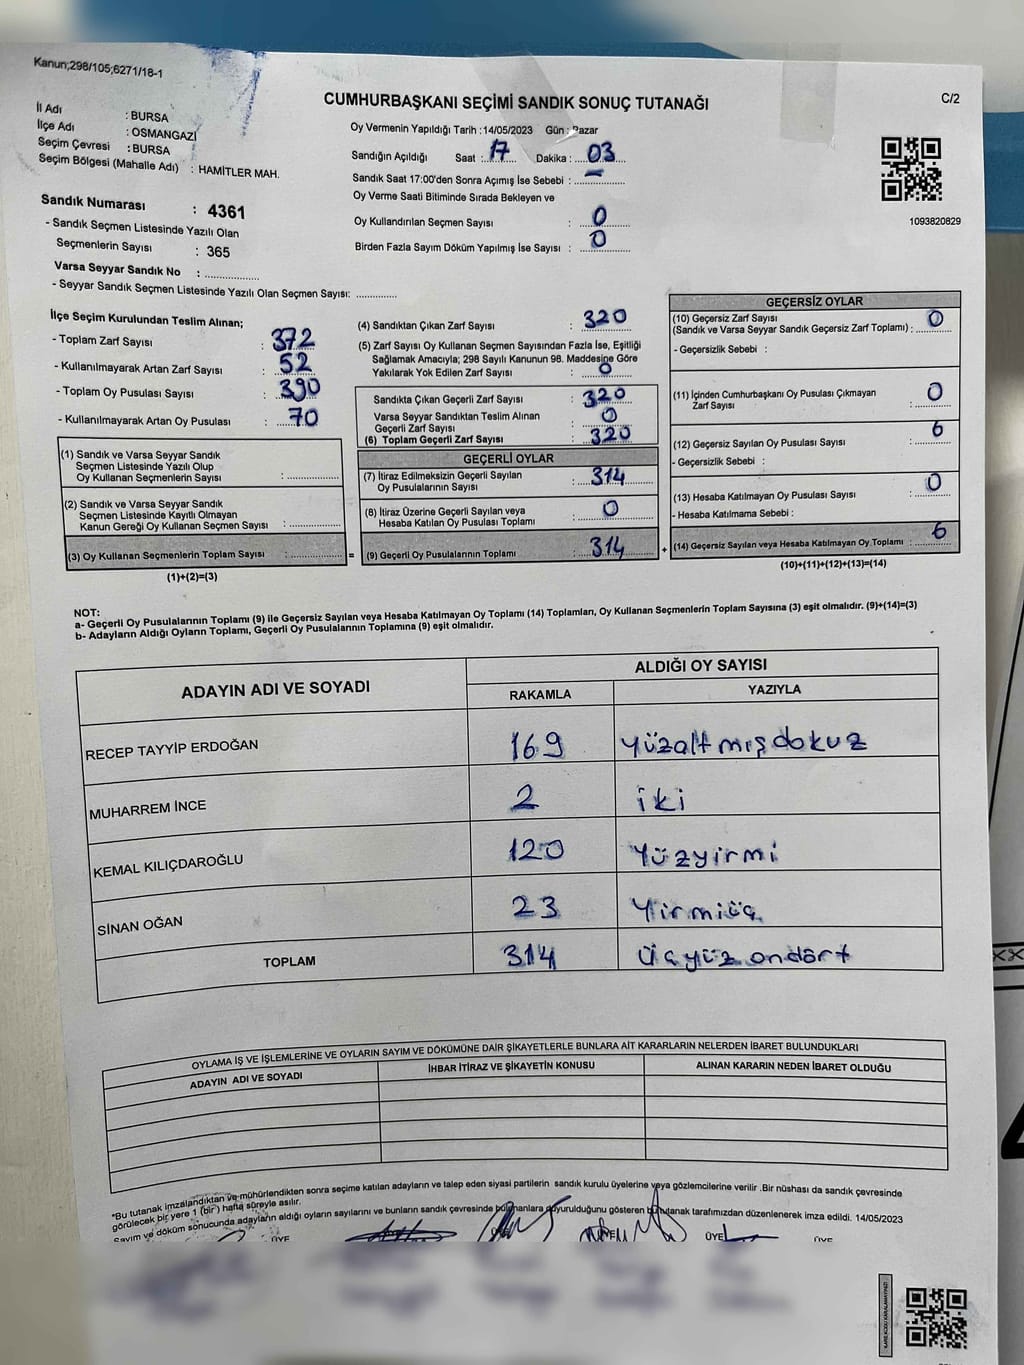 Kanun;298/105;6271/18-1
CUMHURBAŞKANI SEÇİMİ SANDIK SONUÇ TUTANAĞI
C/2
İl Adı : BURSA
İlçe Adı : OSMANGAZİ
Seçim Çevresi : BURSA
Seçim Bölgesi (Mahalle Adı) : HAMİTLER MAH.
Oy Vermenin Yapıldığı Tarih :14/05/2023 Gün : Pazar
Sandığın Açıldığı Saat : 17 Dakika : 03
Sandık Saat 17:00'den Sonra Açımış İse Sebebi : -
Oy Verme Saati Bitiminde Sırada Bekleyen ve
Oy Kullandırılan Seçmen Sayısı : 0
Birden Fazla Sayım Döküm Yapılmış İse Sayısı : 0
1093820829
Sandık Numarası : 4361
- Sandık Seçmen Listesinde Yazılı Olan
Seçmenlerin Sayısı : 365
Varsa Seyyar Sandık No : ................
- Seyyar Sandık Seçmen Listesinde Yazılı Olan Seçmen Sayısı: ............
İlçe Seçim Kurulundan Teslim Alınan;
- Toplam Zarf Sayısı : 372
- Kullanılmayarak Artan Zarf Sayısı : 52
- Toplam Oy Pusulası Sayısı : 390
- Kullanılmayarak Artan Oy Pusulası : 70
(1) Sandık ve Varsa Seyyar Sandık
Seçmen Listesinde Yazılı Olup
Oy Kullanan Seçmenlerin Sayısı :
(2) Sandık ve Varsa Seyyar Sandık
Seçmen Listesinde Kayıtlı Olmayan
Kanun Gereği Oy Kullanan Seçmen Sayısı :
(3) Oy Kullanan Seçmenlerin Toplam Sayısı : =
(1)+(2)=(3)
(4) Sandıktan Çıkan Zarf Sayısı : 320
(5) Zarf Sayısı Oy Kullanan Seçmen Sayısından Fazla İse, Eşitliği
Sağlamak Amacıyla; 298 Sayılı Kanunun 98. Maddesine Göre
Yakılarak Yok Edilen Zarf Sayısı : 0
Sandıkta Çıkan Geçerli Zarf Sayısı : 320
Varsa Seyyar Sandıktan Teslim Alınan
Geçerli Zarf Sayısı : 0
(6) Toplam Geçerli Zarf Sayısı : 320
GEÇERLİ OYLAR
(7) İtiraz Edilmeksizin Geçerli Sayılan
Oy Pusulalarının Sayısı : 314
(8) İtiraz Üzerine Geçerli Sayılan veya
Hesaba Katılan Oy Pusulası Toplamı : 0
(9) Geçerli Oy Pusulalarının Toplamı : 314 +
GEÇERSİZ OYLAR
(10) Geçersiz Zarf Sayısı
(Sandık ve Varsa Seyyar Sandık Geçersiz Zarf Toplamı) : 0
- Geçersizlik Sebebi :
(11) İçinden Cumhurbaşkanı Oy Pusulası Çıkmayan
Zarf Sayısı : 0
(12) Geçersiz Sayılan Oy Pusulası Sayısı : 6
- Geçersizlik Sebebi :
(13) Hesaba Katılmayan Oy Pusulası Sayısı : 0
- Hesaba Katılmama Sebebi :
(14) Geçersiz Sayılan veya Hesaba Katılmayan Oy Toplamı : 6
(10)+(11)+(12)+(13)=(14)
NOT:
a- Geçerli Oy Pusulalarının Toplamı (9) ile Geçersiz Sayılan veya Hesaba Katılmayan Oy Toplamı (14) Toplamları, Oy Kullanan Seçmenlerin Toplam Sayısına (3) eşit olmalıdır. (9)+(14)=(3)
b- Adayların Aldığı Oyların Toplamı, Geçerli Oy Pusulalarının Toplamına (9) eşit olmalıdır.
ADAYIN ADI VE SOYADI ALDIĞI OY SAYISI
RAKAMLA YAZIYLA
RECEP TAYYİP ERDOĞAN 169 Yüzaltmışdokuz
MUHARREM İNCE 2 iki
KEMAL KILIÇDAROĞLU 120 Yüzyirmi
SİNAN OĞAN 23 Yirmiüç
TOPLAM 314 Üçyüz ondört
OYLAMA İŞ VE İŞLEMLERİNE VE OYLARIN SAYIM VE DÖKÜMÜNE DAİR ŞİKAYETLERLE BUNLARA AİT KARARLARIN NELERDEN İBARET BULUNDUKLARI
ADAYIN ADI VE SOYADI İHBAR İTİRAZ VE ŞİKAYETİN KONUSU ALINAN KARARIN NEDEN İBARET OLDUĞU
*Bu tutanak imzalandıktan ve mühürlendikten sonra seçime katılan adayların ve talep eden siyasi partilerin sandık kurulu üyelerine veya gözlemcilerine verilir .Bir nüshası da sandık çevresinde
görülecek bir yere 1 (bir ) hafta süreyle asılır.
Sayım ve döküm sonucunda adayların aldığı oyların sayılarını ve bunların sandık çevresinde bulunanlara duyurulduğunu gösteren bu tutanak tarafımızdan düzenlenerek imza edildi. 14/05/2023
ÜYE ÜYE ÜYE